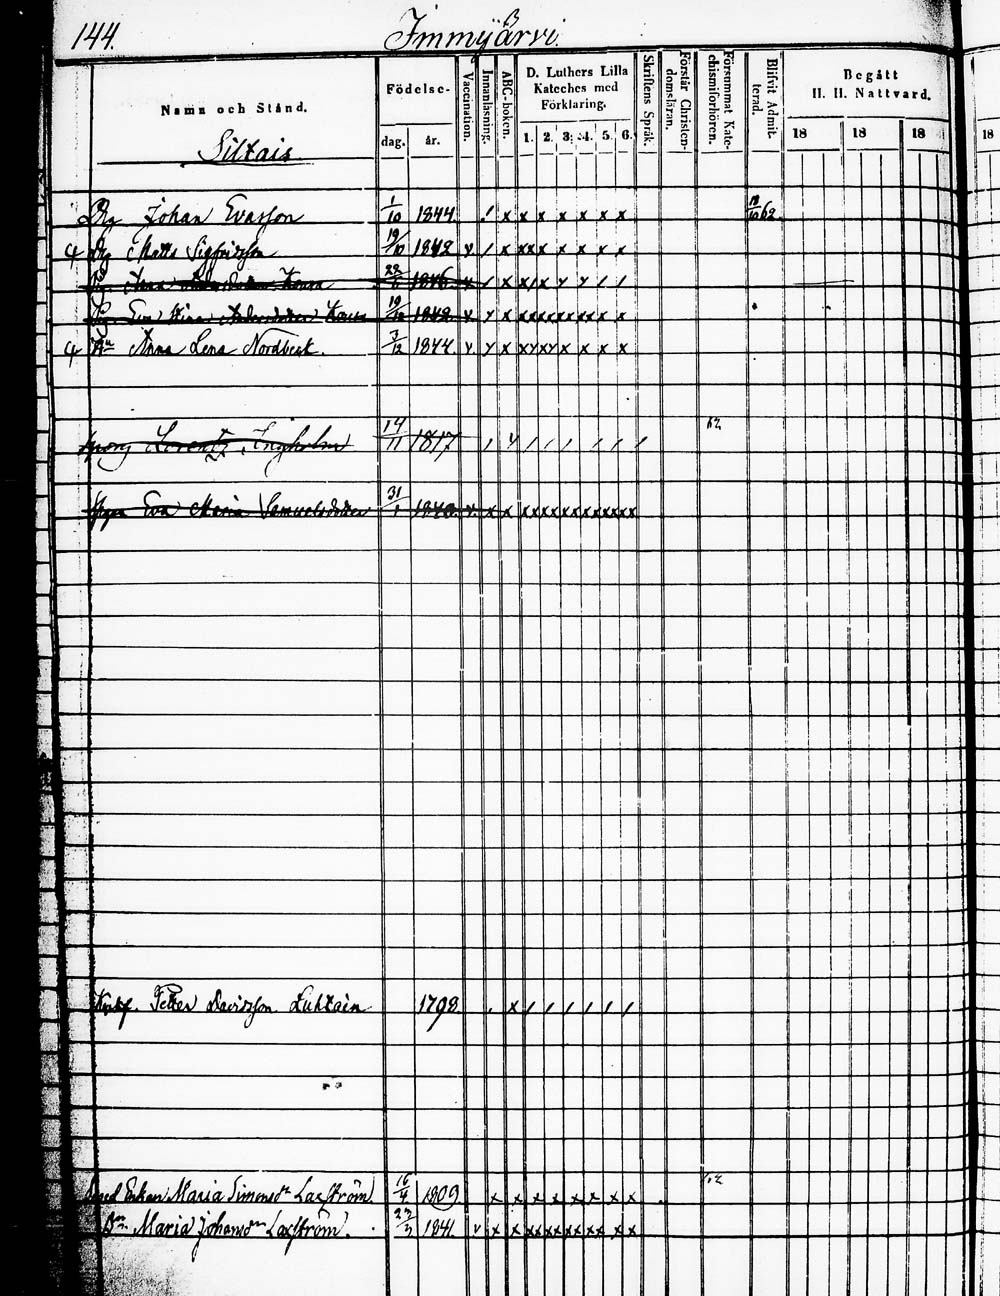 144.
Immyjärvi.
Namn och Stånd.
Siltais
Födelse-
dag. år.
Vaccination.
Innanläsning.
ABC-boken.
D. Luthers Lilla
Kateches med
Förklaring.
1. 2. 3. 4. 5. 6.
Skriftens Språk.
Förstår Christen-
domsläran.
Försummat Kate-
chismiförhören.
Blifvit Admit-
terad.
Begått
H. H. Nattvard.
18 18 18 18
Dg Johan Evasson 1/10 1844. / x x x x x x x 18/10 62
Dg Matts Sigfridsson 19/10 1842 v / x xxx x x x x
Anna 22 1846
Pig. Eva Stina Andersdotter 19 1842 v. y x
Anna Lena Nordbeck. 7/12 1844. v. y x xyxyx x x x
Lorentz Engholm 14/11 1817 62
Eva Maria Samuelsdotter 31/1 v. x x
Petter Davidsson Luhtain 1798. x / / / / / /
Enkan Maria Simonsdr Laxström 16/4 1809 x x x x x x x x 62
Dn Maria Johansdr Laxström. 27/3 1841. v x x xx xx xx xx x x